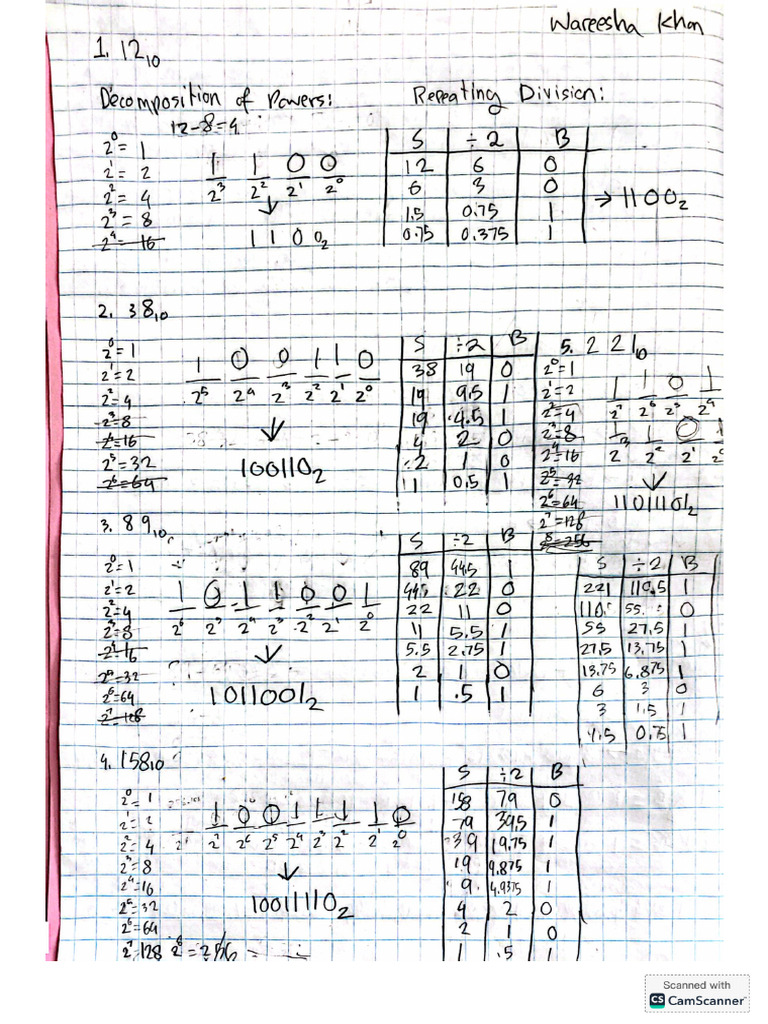 Wareesha Khan
1. 12₁₀
Decomposition of Powers:
12-8=4
2⁰= 1
2¹= 2
2²= 4
2³= 8
2⁴= 16
1 1 0 0
2³ 2² 2¹ 2⁰
1 1 0 0₂
Repeating Division:
S ÷2 B
12 6 0
6 3 0
1.5 0.75 1
0.75 0.375 1
→ 1100₂
2. 38₁₀
2⁰=1
2¹=2
2²=4
2³=8
2⁴=16
2⁵=32
2⁶=64
1 0 0 1 1 0
2⁵ 2⁴ 2³ 2² 2¹ 2⁰
100110₂
S ÷2 B
38 19 0
19 9.5 1
19 4.5 1
4 2 0
2 1 0
1 0.5 1
5. 221₁₀
2⁰=1
2¹=2
2²=4
2³=8
2⁴=16
2⁵=32
2⁶=64
2⁷=128
2⁸=256
1 1 0 1
2⁷ 2⁶ 2⁵ 2⁴
1 1 0 1
2³ 2² 2¹ 2⁰
11011101₂
S ÷2 B
221 110.5 1
110. 55. 0
55 27.5 1
27.5 13.75 1
13.75 6.875 1
6 3 0
3 1.5 1
1.5 0.75 1
3. 89₁₀
2⁰=1
2¹=2
2²=4
2³=8
2⁴=16
2⁵=32
2⁶=64
2⁷=128
1 0 1 1 0 0 1
2⁶ 2⁵ 2⁴ 2³ 2² 2¹ 2⁰
1011001₂
S ÷2 B
89 44.5 1
44.5 22 0
22 11 0
11 5.5 1
5.5 2.75 1
2 1 0
1 .5 1
4. 158₁₀
2⁰= 1
2¹= 2
2²= 4
2³=8
2⁴=16
2⁵=32
2⁶=64
2⁷=128 2⁸=256
1 0 0 1 1 1 1 0
2⁷ 2⁶ 2⁵ 2⁴ 2³ 2² 2¹ 2⁰
10011110₂
S ÷2 B
158 79 0
79 39.5 1
39 19.75 1
19 9.875 1
9. 4.9375 1
4 2 0
2 1 0
1 .5 1
Scanned with
CS CamScanner